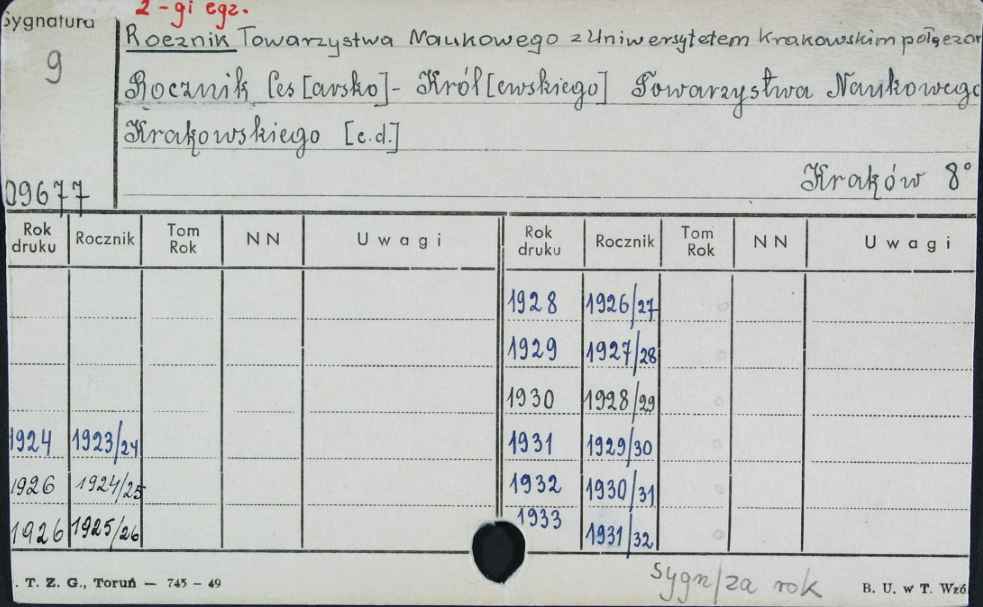 Sygnatura
2-gi egz.
Rocznik Towarzystwa Naukowego z Uniwersytetem Krakowskim połączon
9
Rocznik Ces[arsko]- Król[ewskiego] Towarzystwa Naukowego
Krakowskiego [c.d.]
09677
Kraków 8°
Rok druku Rocznik Tom Rok NN Uwagi Rok druku Rocznik Tom Rok NN Uwagi
1928 1926/27
1929 1927/28
1930 1928/29
1924 1923/24 1931 1929/30
1926 1924/25 1932 1930/31
1926 1925/26 1933 1931/32
. T. Z. G., Toruń — 745 - 49
Sygn/za rok
B. U. w T. Wzó